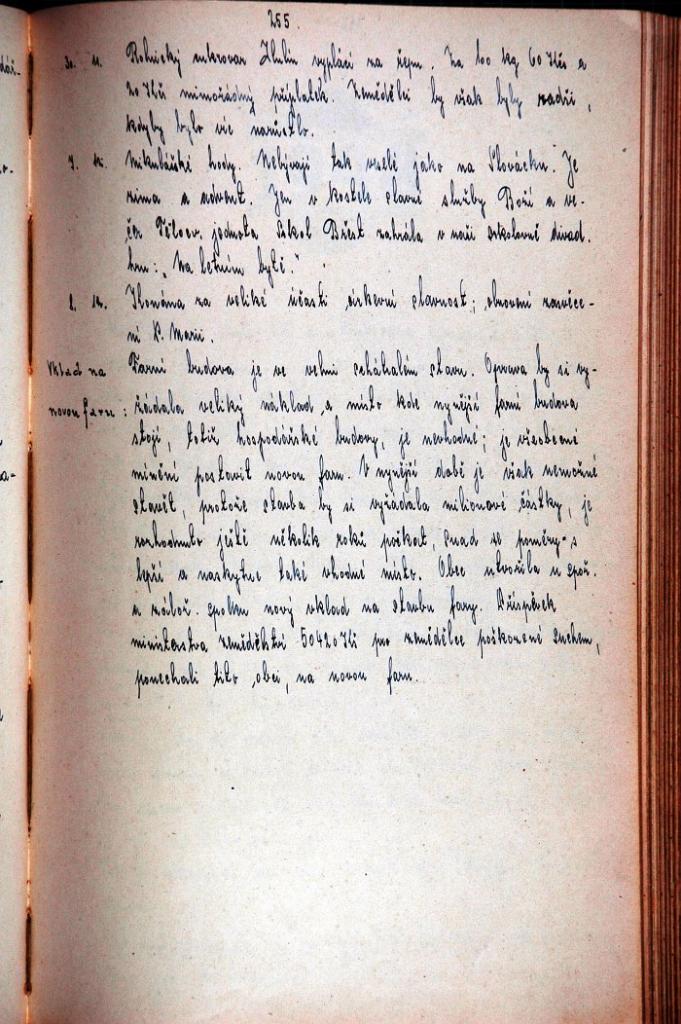 255.
30. 11. Rolnický cukrovar Hulín vyplácí za řepu. Za 100 kg 60 Kčs a
20 Kčs mimořádný příplatek. Zemědělci by však byly radši,
kdyby bylo víc narůstlo.
7. 12. Mikulášské hody. Nebývají tak veselé jako na Slovácku. Je
zima a advent. Jen v kostele slavné služby Boží a ve-
čer Těloev. jednota Sokol Břest zahrála v naší sokolovně divad.
hru: „Na letním bytě.“
8. 12. Konána za veliké účasti církevní slavnost; obnovení zasvěce-
ní P. Marii.
Vklad na Farní budova je ve velmi schátralém stavu. Oprava by si vy-
novou faru: žádala veliký náklad a místo kde nynější farní budova
stojí, totiž hospodářské budovy, je nevhodné; je všeobecné
mínění postavit novou faru. V nynější době je však nemožné
stavět, protože stavba by si vyžádala milionové částky, je
rozhodnuto ještě několik roků počkat, snad se poměry z-
lepší a naskytne také vhodné místo. Obec utvořila u spoř.
a zálož. spolku nový vklad na stavbu fary. Příspěvek
ministerstva zemědělství 50420 Kčs pro zemědělce poškozené suchem,
ponechali tito obci, na novou faru.